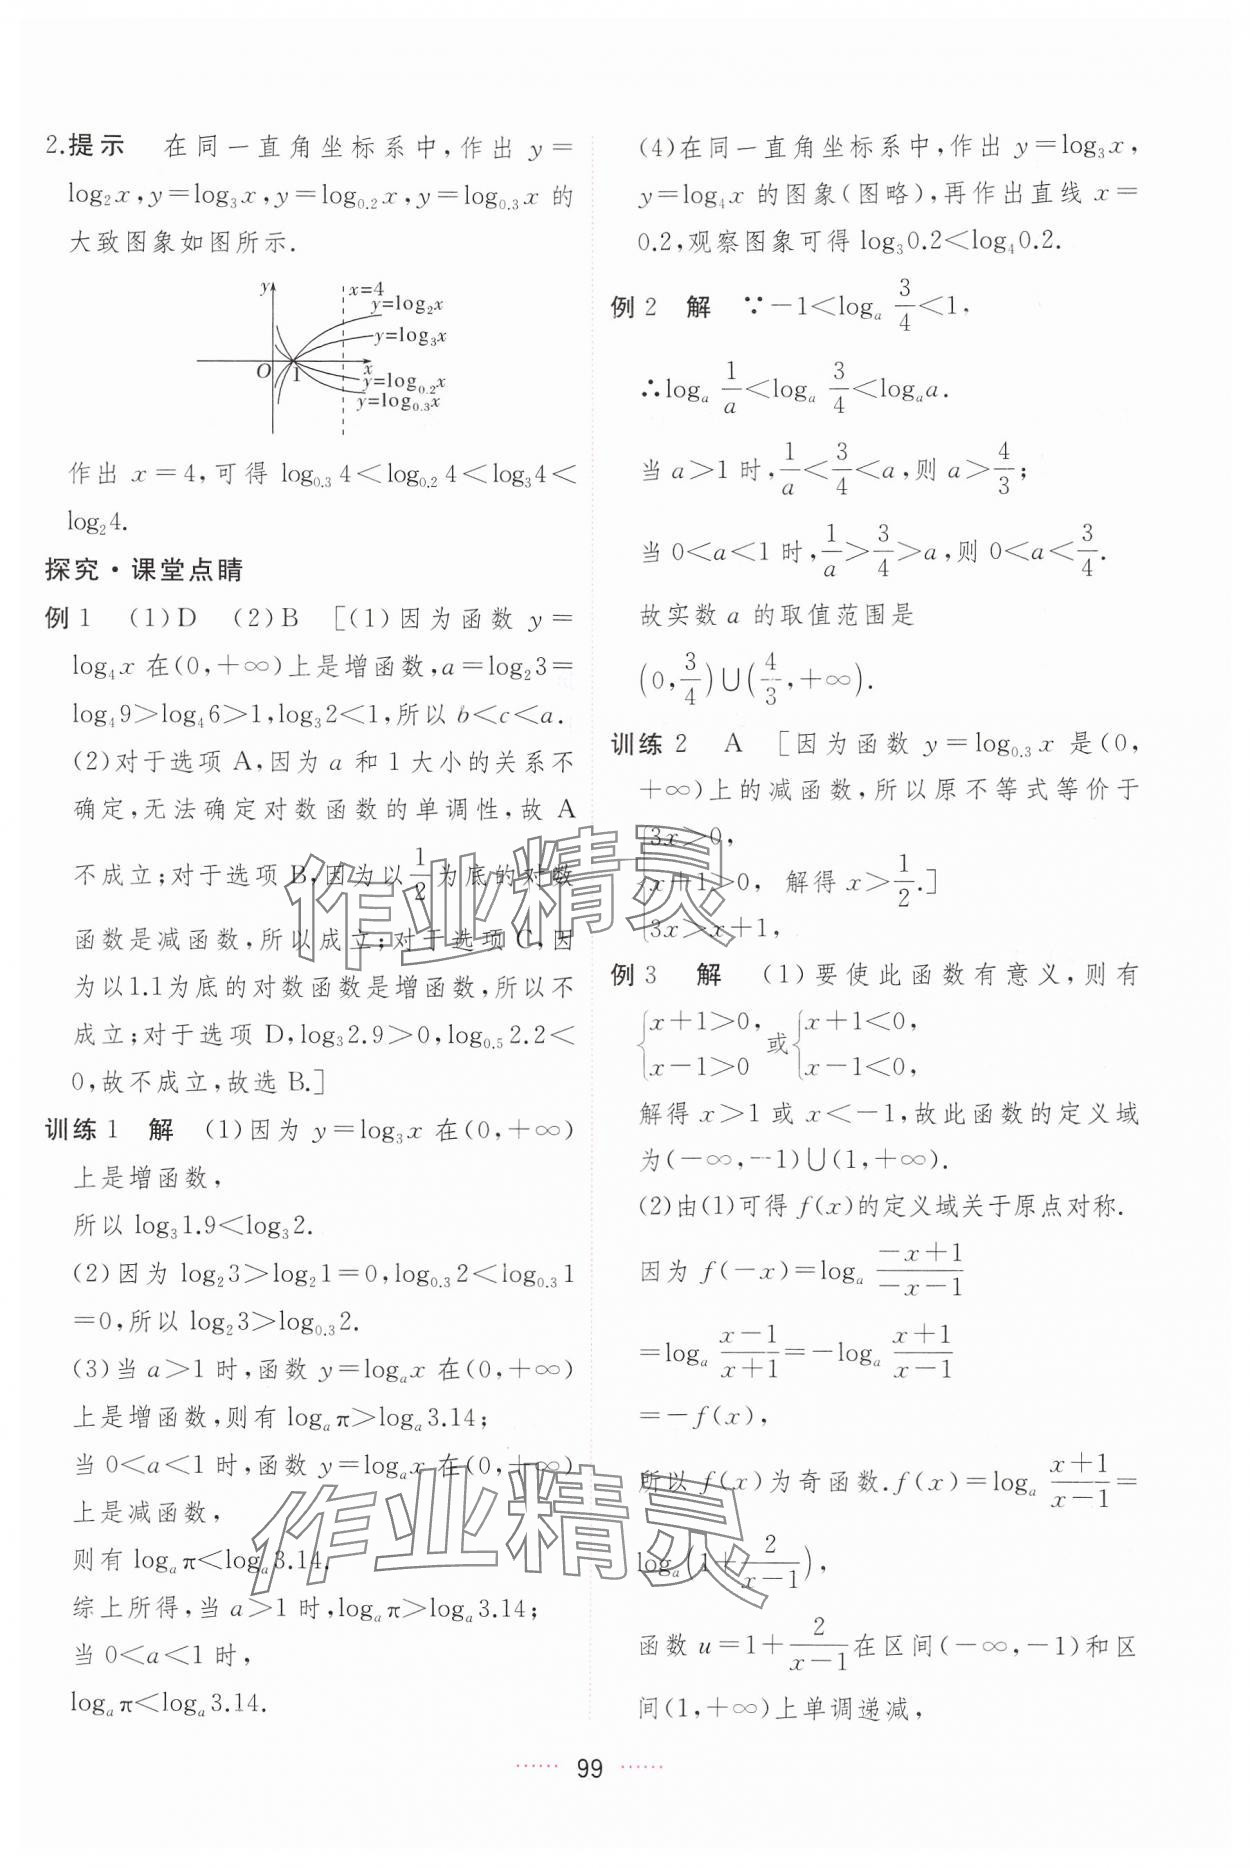 2.提示　在同一直角坐标系中,作出 y=
log₂x,y=log₃x,y=log₀.₂x,y=log₀.₃x 的
大致图象如图所示.
y
x=4
y=log₂x
y=log₃x
O 1 x
y=log₀.₂x
y=log₀.₃x
作出 x=4,可得 log₀.₃4<log₀.₂4<log₃4<
log₂4.
探究·课堂点睛
例1　(1)D　(2)B　[(1)因为函数 y=
log₄x 在(0,+∞)上是增函数,a=log₂3=
log₄9>log₄6>1,log₃2<1,所以 b<c<a.
(2)对于选项 A,因为 a 和 1 大小的关系不
确定,无法确定对数函数的单调性,故 A
不成立;对于选项 B,因为以 1/2 为底的对数
函数是减函数,所以成立;对于选项 C,因
为以1.1为底的对数函数是增函数,所以不
成立;对于选项 D,log₃2.9>0,log₀.₅2.2<
0,故不成立,故选 B.]
训练1　解　(1)因为 y=log₃x 在(0,+∞)
上是增函数,
所以 log₃1.9<log₃2.
(2)因为 log₂3>log₂1=0,log₀.₃2<log₀.₃1
=0,所以 log₂3>log₀.₃2.
(3)当 a>1 时,函数 y=logₐx 在(0,+∞)
上是增函数,则有 logₐπ>logₐ3.14;
当 0<a<1 时,函数 y=logₐx 在(0,+∞)
上是减函数,
则有 logₐπ<logₐ3.14.
综上所得,当 a>1 时,logₐπ>logₐ3.14;
当 0<a<1 时,
logₐπ<logₐ3.14.
(4)在同一直角坐标系中,作出 y=log₃x,
y=log₄x 的图象(图略),再作出直线 x=
0.2,观察图象可得 log₃0.2<log₄0.2.
例2　解　∵-1<logₐ 3/4<1,
∴logₐ 1/a<logₐ 3/4<logₐa.
当 a>1 时,1/a<3/4<a,则 a>4/3;
当 0<a<1 时,1/a>3/4>a,则 0<a<3/4.
故实数 a 的取值范围是
(0,3/4)∪(4/3,+∞).
训练2　A　[因为函数 y=log₀.₃x 是(0,
+∞)上的减函数,所以原不等式等价于
{3x>0,
x+1>0, 解得 x>1/2.]
3x>x+1,
例3　解　(1)要使此函数有意义,则有
{x+1>0, 或{x+1<0,
x-1>0 x-1<0,
解得 x>1 或 x<-1,故此函数的定义域
为(-∞,-1)∪(1,+∞).
(2)由(1)可得 f(x)的定义域关于原点对称.
因为 f(-x)=logₐ (-x+1)/(-x-1)
=logₐ (x-1)/(x+1)=-logₐ (x+1)/(x-1)
=-f(x),
所以 f(x)为奇函数.f(x)=logₐ (x+1)/(x-1)=
logₐ(1+2/(x-1)),
函数 u=1+2/(x-1)在区间(-∞,-1)和区
间(1,+∞)上单调递减,
作业精灵
作业精灵
99